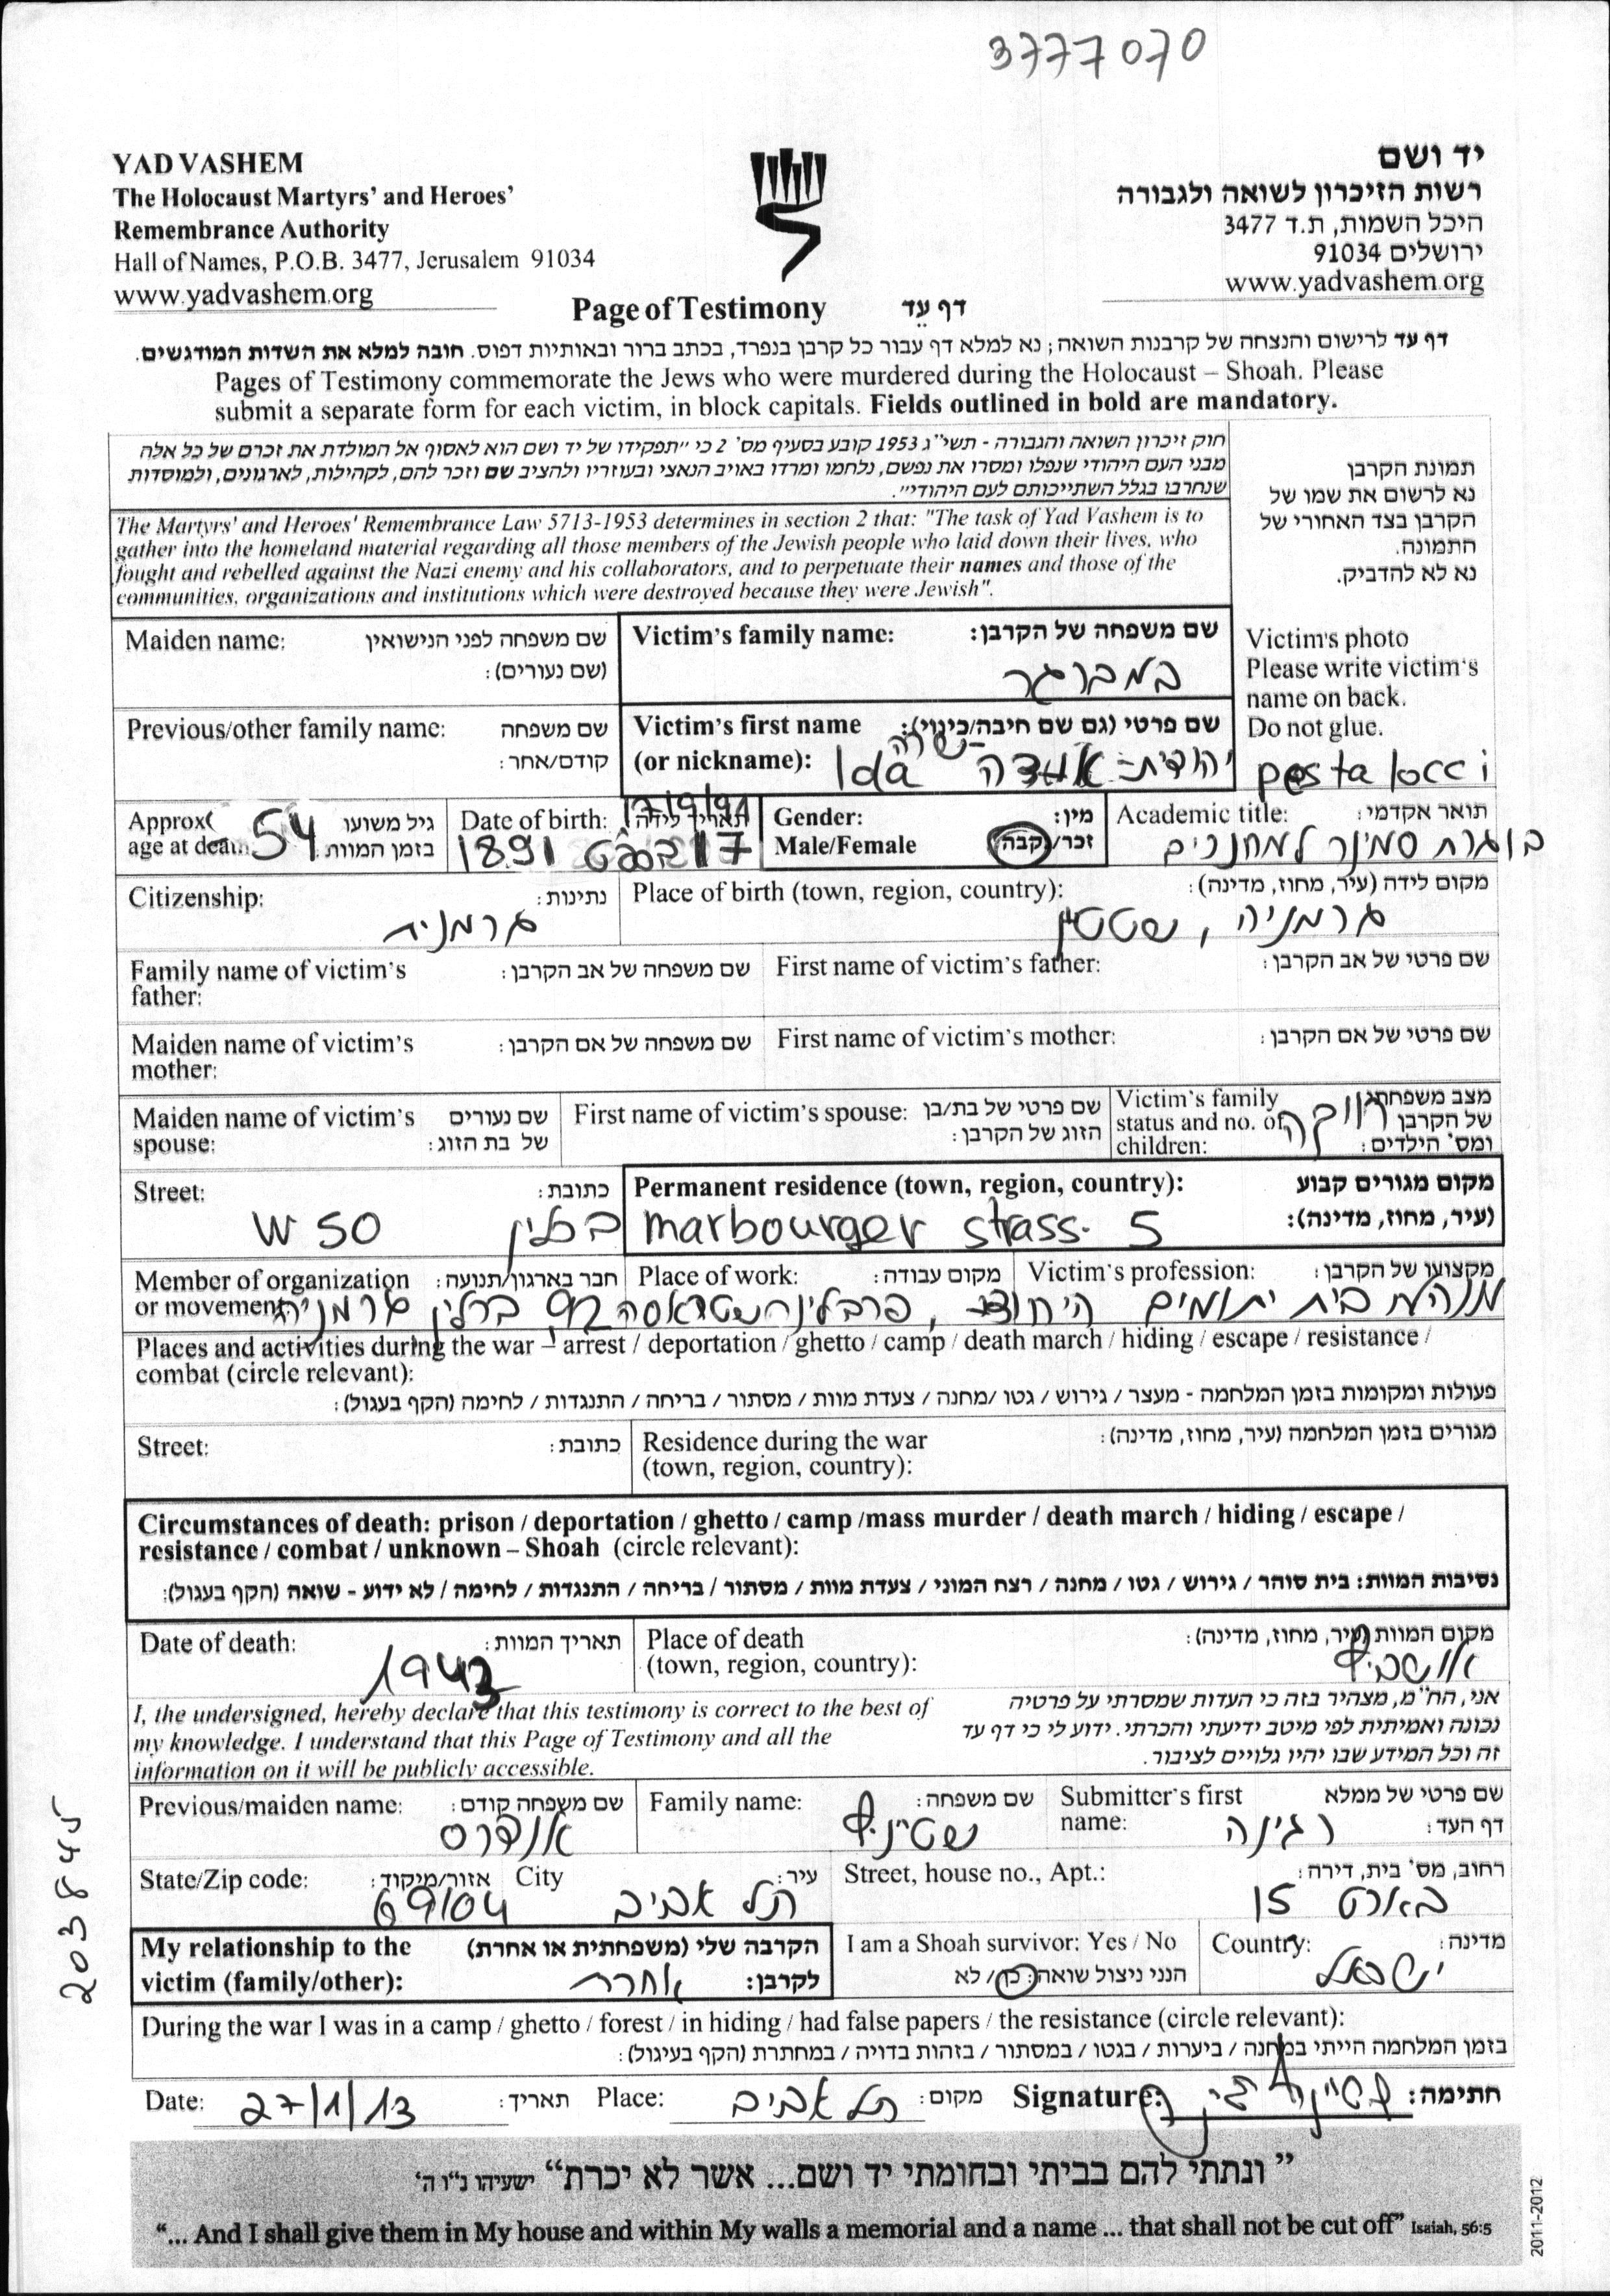 3777070
YAD VASHEM
The Holocaust Martyrs' and Heroes'
Remembrance Authority
Hall of Names, P.O.B. 3477, Jerusalem 91034
www.yadvashem.org
יד ושם
רשות הזיכרון לשואה ולגבורה
היכל השמות, ת.ד 3477
ירושלים 91034
www.yadvashem.org
Page of Testimony דף עֵד
דף עד לרישום והנצחה של קרבנות השואה; נא למלא דף עבור כל קרבן בנפרד, בכתב ברור ובאותיות דפוס. חובה למלא את השדות המודגשים.
Pages of Testimony commemorate the Jews who were murdered during the Holocaust – Shoah. Please
submit a separate form for each victim, in block capitals. Fields outlined in bold are mandatory.
חוק זיכרון השואה והגבורה - תשי"ג 1953 קובע בסעיף מס' 2 כי "תפקידו של יד ושם הוא לאסוף אל המולדת את זכרם של כל אלה
מבני העם היהודי שנפלו ומסרו את נפשם, נלחמו ומרדו באויב הנאצי ובעוזריו ולהציב שם וזכר להם, לקהילות, לארגונים, ולמוסדות
שנחרבו בגלל השתייכותם לעם היהודי".
The Martyrs' and Heroes' Remembrance Law 5713-1953 determines in section 2 that: "The task of Yad Vashem is to
gather into the homeland material regarding all those members of the Jewish people who laid down their lives, who
fought and rebelled against the Nazi enemy and his collaborators, and to perpetuate their names and those of the
communities, organizations and institutions which were destroyed because they were Jewish".
תמונת הקרבן
נא לרשום את שמו של
הקרבן בצד האחורי של
התמונה.
נא לא להדביק.
Victim's photo
Please write victim's
name on back.
Do not glue.
pestalocci
Maiden name: שם משפחה לפני הנישואין
(שם נעורים):
Victim's family name: שם משפחה של הקרבן:
במברגר
Previous/other family name: שם משפחה
קודם/אחר:
Victim's first name שם פרטי (גם שם חיבה/כינוי):
(or nickname): Ida יהודית שרה
Approx age at death: 54 גיל משוער
בזמן המוות:
Date of birth: תאריך לידה: 17/9/91
17 1891
Gender: מין:
Male/Female זכר/נקבה
Academic title: תואר אקדמי:
בוגרת סמינר למחנכים
Citizenship: נתינות:
גרמנית
Place of birth (town, region, country): מקום לידה (עיר, מחוז, מדינה):
גרמניה, שטטין
Family name of victim's שם משפחה של אב הקרבן:
father:
First name of victim's father: שם פרטי של אב הקרבן:
Maiden name of victim's שם משפחה של אם הקרבן:
mother:
First name of victim's mother: שם פרטי של אם הקרבן:
Maiden name of victim's שם נעורים
spouse: של בת הזוג:
First name of victim's spouse: שם פרטי של בת/בן
הזוג של הקרבן:
Victim's family מצב משפחתי
status and no. of של הקרבן
children: ומס' הילדים:
רווקה
Street: כתובת:
W 50 ברלין
Permanent residence (town, region, country): מקום מגורים קבוע
(עיר, מחוז, מדינה):
marbourger strass. 5
Member of organization חבר בארגון/תנועה:
or movement:
Place of work: מקום עבודה:
Victim's profession: מקצועו של הקרבן:
מנהלת בית יתומים היהודי, ברלין גרמניה
Places and activities during the war – arrest / deportation / ghetto / camp / death march / hiding / escape / resistance /
combat (circle relevant):
פעולות ומקומות בזמן המלחמה - מעצר / גירוש / גטו /מחנה / צעדת מוות / מסתור / בריחה / התנגדות / לחימה (הקף בעגול):
Street: כתובת:
Residence during the war מגורים בזמן המלחמה (עיר, מחוז, מדינה):
(town, region, country):
Circumstances of death: prison / deportation / ghetto / camp /mass murder / death march / hiding / escape /
resistance / combat / unknown – Shoah (circle relevant):
נסיבות המוות: בית סוהר / גירוש / גטו / מחנה / רצח המוני / צעדת מוות / מסתור / בריחה / התנגדות / לחימה / לא ידוע - שואה (הקף בעגול):
Date of death: תאריך המוות:
1943
Place of death מקום המוות (עיר, מחוז, מדינה):
(town, region, country):
אושביץ
I, the undersigned, hereby declare that this testimony is correct to the best of
my knowledge. I understand that this Page of Testimony and all the
information on it will be publicly accessible.
אני, הח"מ, מצהיר בזה כי העדות שמסרתי על פרטיה
נכונה ואמיתית לפי מיטב ידיעתי והכרתי. ידוע לי כי דף עד
זה וכל המידע שבו יהיו גלויים לציבור.
Previous/maiden name: שם משפחה קודם:
אנדרס
Family name: שם משפחה:
שטיניץ
Submitter's first שם פרטי של ממלא
name: דף העד:
רגינה
State/Zip code: אזור/מיקוד:
69104
City עיר:
תל אביב
Street, house no., Apt.: רחוב, מס' בית, דירה:
בארט 15
My relationship to the הקרבה שלי (משפחתית או אחרת)
victim (family/other): לקרבן:
אחרת
I am a Shoah survivor: Yes / No
הנני ניצול שואה: כן / לא
Country: מדינה:
ישראל
During the war I was in a camp / ghetto / forest / in hiding / had false papers / the resistance (circle relevant):
בזמן המלחמה הייתי במחנה / ביערות / בגטו / במסתור / בזהות בדויה / במחתרת (הקף בעיגול):
Date: 27/1/13 תאריך: Place: תל אביב מקום: Signature: חתימה:
" ונתתי להם בביתי ובחומתי יד ושם... אשר לא יכרת" ישעיהו נ"ו ה'
"... And I shall give them in My house and within My walls a memorial and a name ... that shall not be cut off" Isaiah, 56:5
203845
2011-2012